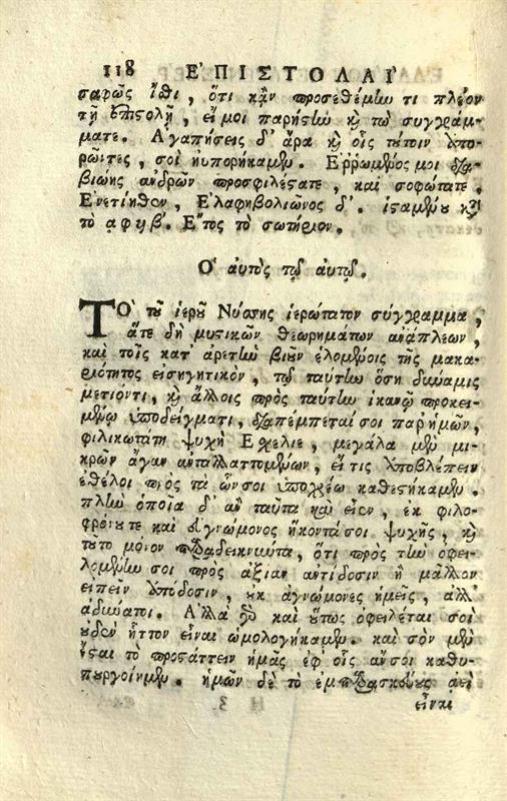 118 ἘΠΙΣΤΟΛΑΙ
σαφῶς ἴσθι, ὅτι κᾂν προσεθέμην τι πλέον
τῇ ἐπιστολῇ, εἴ μοι παρῆν τῷ συγγράμ-
ματι. Ἀγαπήσεις δ' ἄρα καὶ οἷς
σοὶ ηὐπορήκαμεν. Ἐῤῥωμένος μοι δια-
βιῴης ἀνδρῶν προσφιλέστατε, καὶ σοφώτατε.
Ἐνετίηθεν, Ἐλαφηβολιῶνος δ'. ἱσταμένου κατὰ
τὸ αφιβ'. Ἔτος τὸ σωτήριον.
Ὁ αὐτὸς τῷ αὐτῷ.
ΤὸΟ τοῦ ἱεροῦ Νύσσης ἱερώτατον σύγγραμμα,
ἅτε δὴ μυστικῶν θεωρημάτων ἀνάπλεων,
καὶ τοῖς κατ ἀρετὴν βιοῦν ἑλομένοις τῆς μακα-
ριότητος εἰσηγητικὸν, τῷ ταύτην ὅση δύναμις
μετιόντι, καὶ ἄλλοις πρὸς ταύτην ἱκανῷ προκει-
μένῳ ὑποδείγματι, διαπέμπεταί σοι παρ ἡμῶν,
φιλικωτάτη ψυχὴ μεγάλα μὲν μι-
κρῶν ἄγαν ἀνταλλαττομένων, εἴ τις ὑποβλέπειν
ἐθέλοι πρὸς τὰ ὧν σοι ὑποχρέῳ καθεστήκαμεν.
πλὴν ὁποῖα δ' ἂν ταῦτα καὶ εἶεν, ἐκ φιλο-
φρονοῦντε καὶ εὐγνώμονος ἥκοντά σοι ψυχῆς, καὶ
τοῦτο μόνον παραδεικνύντα, ὅτι πρὸς τὴν ὀφει-
λομένην σοι πρὸς ἀξίαν ἀντίδοσιν ἢ μᾶλλον
εἰπεῖν ἀπόδοσιν, οὐκ ἀγνώμονες ἡμεῖς, ἀλλ
ἀδύνατοι. Ἀλλὰ γὰρ καὶ οὕτως ὀφείλεταί σοι
οὐδὲν ἧττον εἶναι ὡμολογήκαμεν. καὶ σὸν μὲν
ἔσται τὸ προστάττειν ἡμᾶς ἐφ οἷς ἄν σοι καθυ-
πουργοίημεν. ἡμῶν δὲ τὸ ἐμπαρασκεύους ἀεὶ
εἶναι